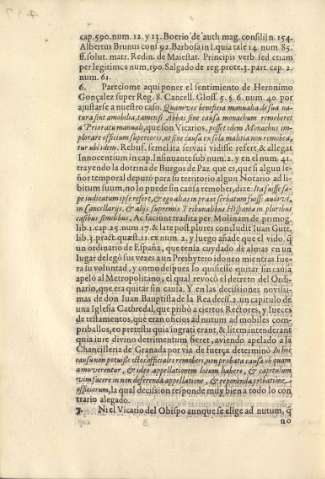 cap.590.num.12. y 13. Boerio de auth mag. consilij n. 154.
Albertus Brunus conf 92. Barbosa in l. quia tale 14. num 85.
ff. solut. matr. Redin. de Maiestat. Principis verb sed etiam
per legitim. num, 190. Salgado de reg. prote. 3. part. cap. 2.
num. 61.
6. Pareciome aqui poner el sentimiento de Hieronimo
Gonçalez super Reg. 8. Cancell. Gloss 5. §. 6. num 40 por
ajustarse a nuestro caso. Quamvis beneficia manualia de sua na-
tura sint amobilia, tamensi Abbas sine causa monachum removeret
a Prioratu manuali, que son Vicarios, posset idem Monachus im-
plorare officium superioris, at sine causa vel sola malitia non removea-
tur ubi idem. Rebuf. semel ita servari vidisse refert, & allegat
Innocentium in cap. 1. insinuante sub num. 2. y en el num. 41.
trayendo la dotrina de Burgos de Paz. que es, que si algun se-
ñor temporal deputò para su territorio algun Notario ad li-
bitum suum, no lo puede sin causa remober, dize. Ita fuisse sæ-
pe iudicatum ipse refert, & ego adhuc in praxi servatum fuisse audivi,
in Cancellarijs, & alijs supremis Tribunalibus Hispaniæ in pluribus
casibus similibus, Ac faciunt tradita per Molinam de primog.
lib. 1. cap. 25. num 17. & late post plures concludit Juan Gutr.
lib. 3. pract. quæst. 11. ex num. 2. y luego añade que el vido. q̃
un ordinario de España, que tenia cuydado de almas en un
lugar delegò sus vezes a un Presbytero idoneo mientras fue-
ra su voluntad, y como despues lo quisiesse quitar sin causa
apelò al Metropolitano, el qual revocò el decreto del Ordi-
nario, que era quitar sin causa. Y en las decissiones novissi-
mas de don Iuan Bauptista de la Rea deciss. 2. un capitulo de
una Iglesia Cathedral, que pribò a ciertos Rectores, y Iueces
de testamentos, que eran oficios ad nutum ad mobiles com-
proballes, eo pretextu quia ingrati erant, & litem intenderant
quia iure divino detrimentum fieret, aviendo apelado a la
Chancilleria de Granada por via de fuerça determinò In hoc
causarum
officiorum, la qual decision responde muy bien a todo lo con-
trario alegado.
7. Ni el Vicario del Obispo aunque se elige ad nutum, q̃
no